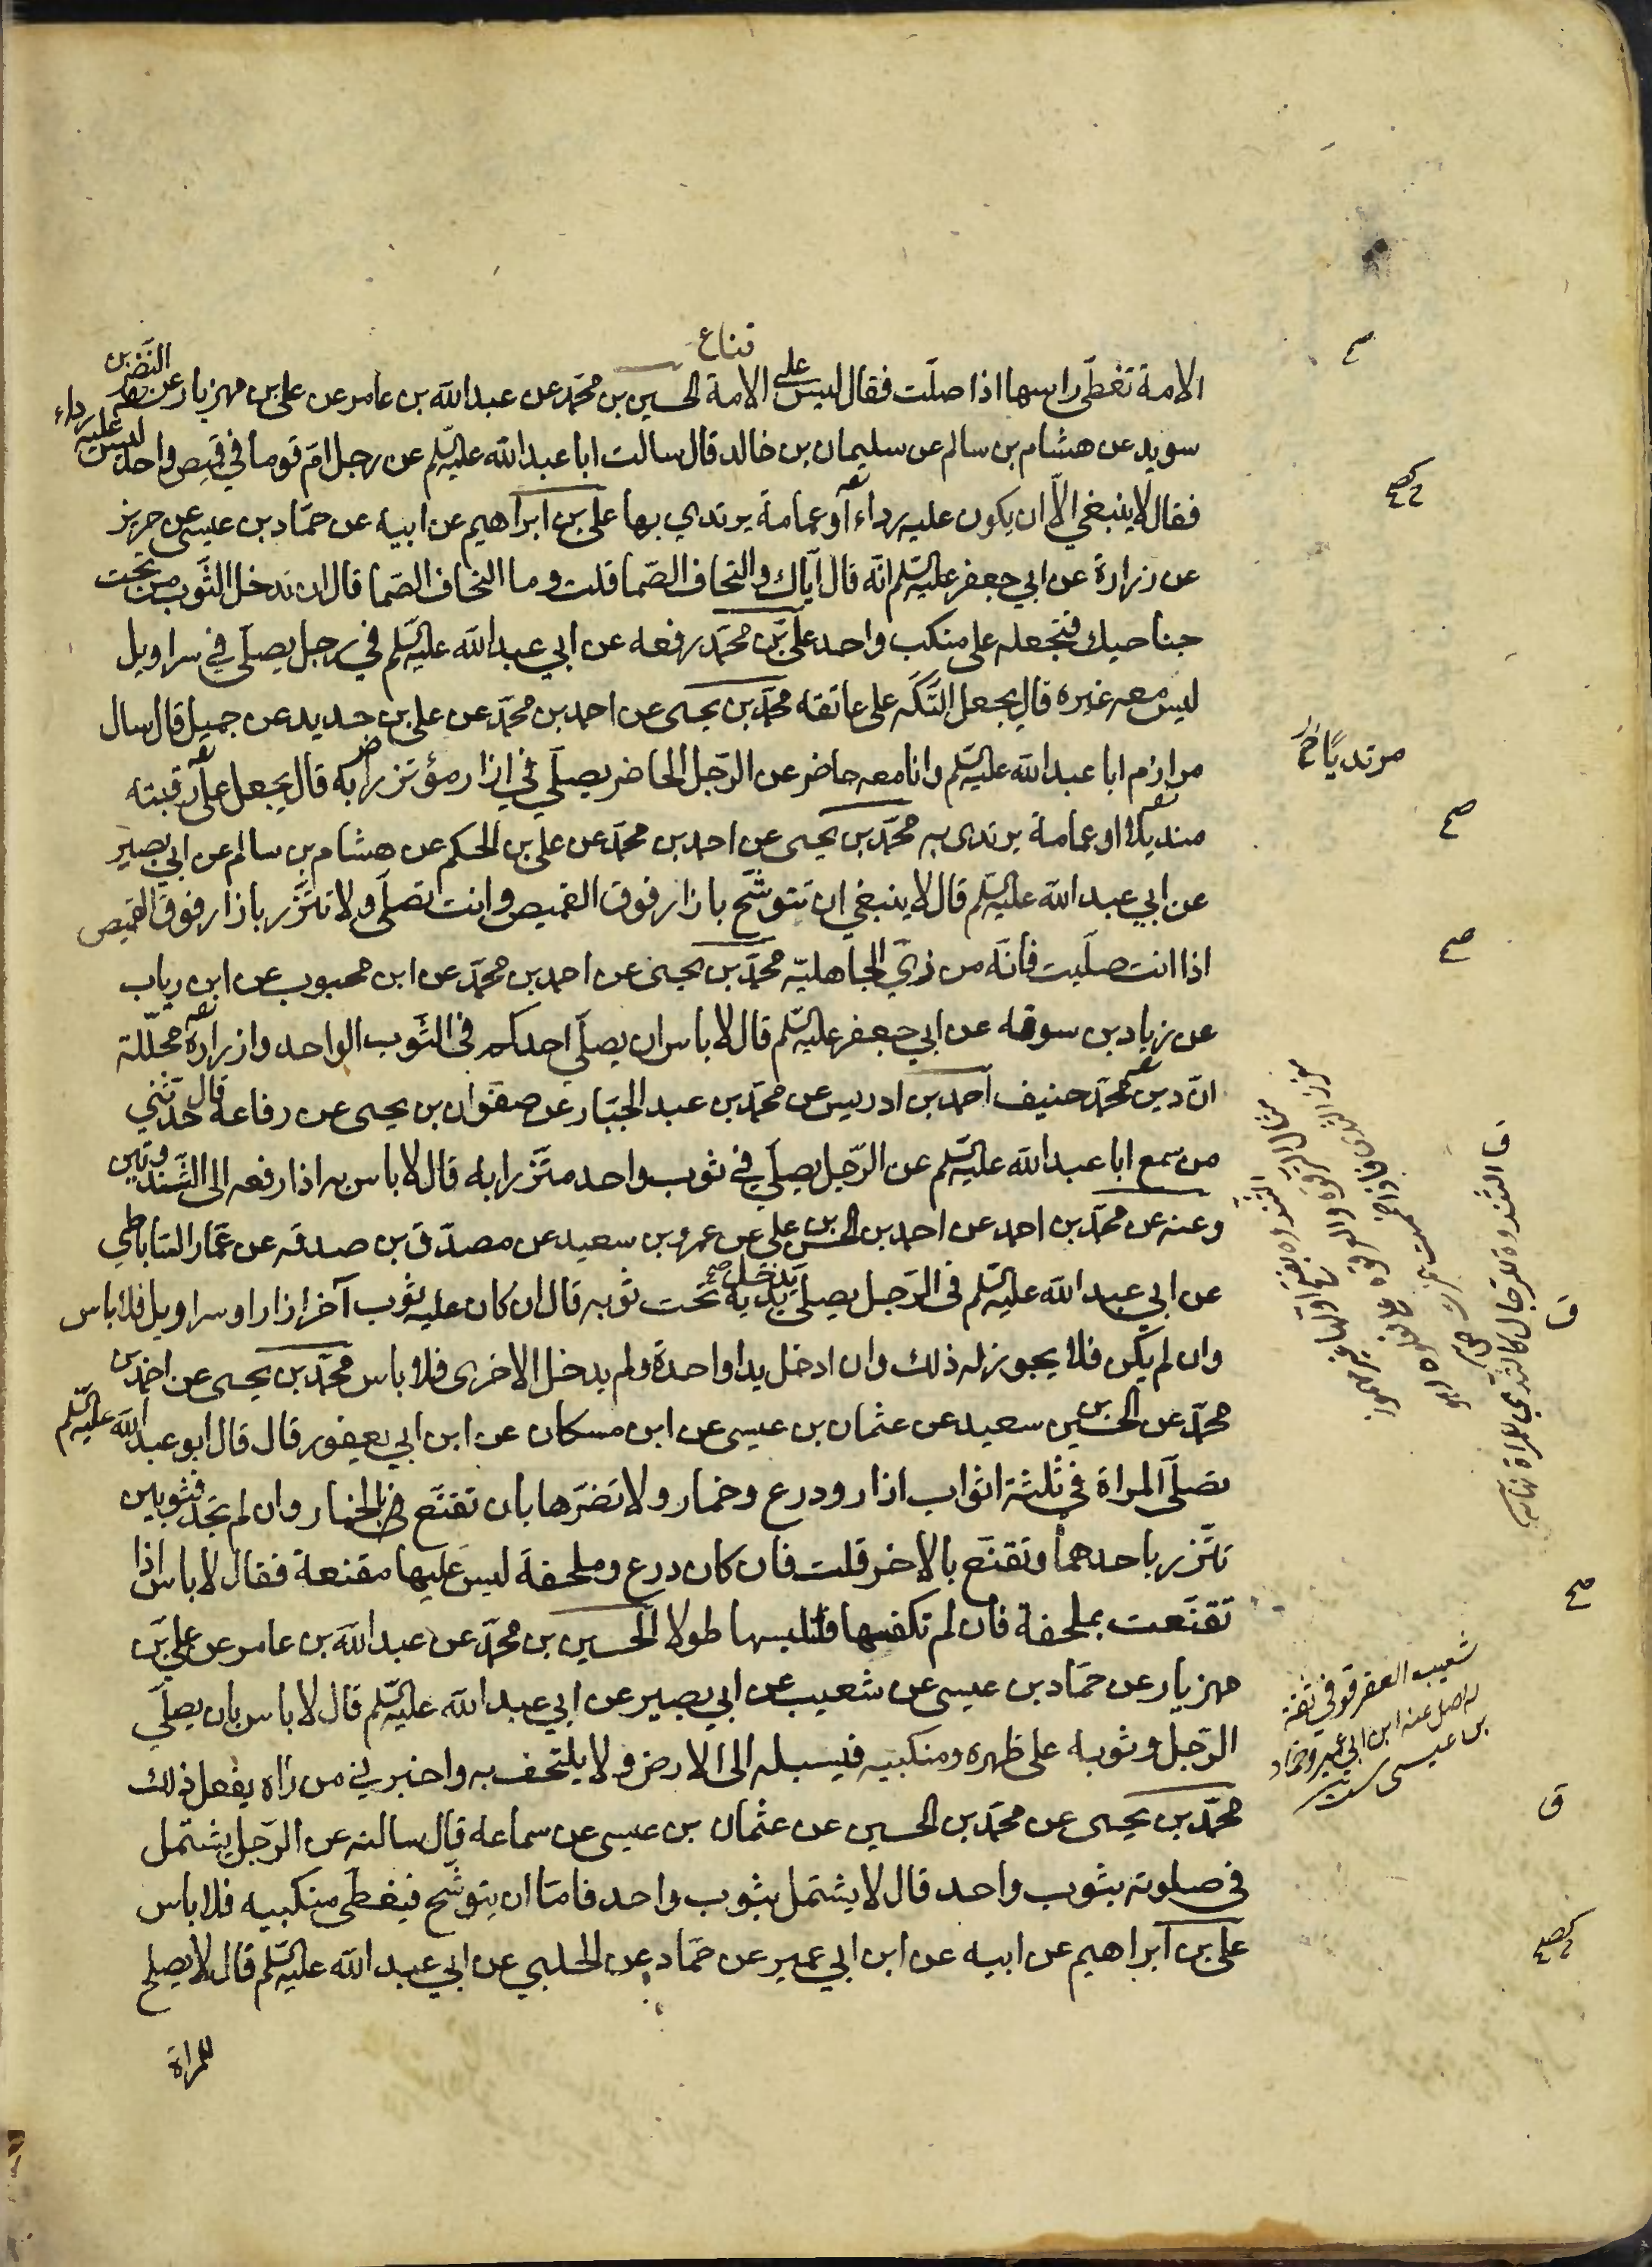 الامة تغطى راسها اذا صلت فقال ليس على الامة قناع الحسين بن محمد عن عبدالله بن عامر عن على بن مهزيار عن النضر بن
سويد عن هشام بن سالم عن سليمان بن خالد قال سالت ابا عبدالله عليه السلم عن رجل ام قوما في قميص واحد ليس عليه رداء
فقال لا ينبغي الا ان يكون عليه رداء او عمامة يرتدي بها على بن ابراهيم عن ابيه عن حماد بن عيسى عن حريز
عن زرارة عن ابي جعفر عليه السلم انه قال اياك والتحاف الصما قلت وما التحاف الصما قال ان تدخل الثوب من تحت
جناحيك فتجعله على منكب واحد على بن محمد رفعه عن ابي عبدالله عليه السلم في رجل يصلي في سراويل
ليس معه غيره قال يجعل التكة على عاتقه محمد بن يحيى عن احمد بن محمد عن على بن حديد عن جميل قال سال
مرازم ابا عبدالله عليه السلم وانا معه حاضر عن الرجل الحاضر يصلي في ازار مؤتزرا به قال يجعل على رقبته
منديلا او عمامة يرتدى به محمد بن يحيى عن احمد بن محمد عن على بن الحكم عن هشام بن سالم عن ابي بصير
عن ابي عبدالله عليه السلم قال لا ينبغي ان تتوشح بازار فوق القميص وانت تصلى ولا تتزر بازار فوق القميص
اذا انت صليت فانه من زي الجاهلية محمد بن يحيى عن احمد بن محمد عن ابن محبوب عن ابن رياب
عن زياد بن سوقه عن ابي جعفر عليه السلم قال لا باس ان يصلي احدكم فى الثوب الواحد وازراره محللة
ان دين محمد حنيف احمد بن ادريس عن محمد بن عبد الجبار عن صفوان بن يحيى عن رفاعة قال حدثني
من سمع ابا عبدالله عليه السلم عن الرجل يصلي في ثوب واحد متزرا به قال لا باس به اذا رفعه الى الثندوتين
وعنه عن محمد بن احمد عن احمد بن الحسن بن على عن عمرو بن سعيد عن مصدق بن صدقه عن عمار الساباطي
عن ابي عبدالله عليه السلم فى الرجل يصلي يدخل يديه تحت ثوبه قال ان كان عليه ثوب آخر ازار او سراويل فلا باس
وان لم يكن فلا يجوز له ذلك وان ادخل يدا واحدة ولم يدخل الاخرى فلا باس محمد بن يحيى عن احمد بن
محمد عن الحسين بن سعيد عن عثمان بن عيسى عن ابن مسكان عن ابن ابي يعفور قال قال ابو عبدالله عليه السلم
تصلي المراة في ثلثة اثواب ازار ودرع وخمار ولا تضرها بان تقنع بالخمار وان لم تجد فثوبين
تتزر باحدهما وتقنع بالاخر قلت فان كان درع وملحفة ليس عليها مقنعة فقال لا باس اذا
تقنعت بملحفة فان لم تكفها فلتلبسها طولا الحسين بن محمد عن عبدالله بن عامر عن على بن
مهزيار عن حماد بن عيسى عن شعيب عن ابي بصير عن ابي عبدالله عليه السلم قال لا باس بان يصلي
الرجل وثوبه على ظهره ومنكبيه فيسبله الى الارض ولا يلتحف به واخبرني من راه يفعل ذلك
محمد بن يحيى عن محمد بن الحسين عن عثمان بن عيسى عن سماعة قال سالته عن الرجل يشتمل
فى صلوته بثوب واحد قال لا يشتمل بثوب واحد فاما ان يتوشح فيغطى منكبيه فلا باس
على بن ابراهيم عن ابيه عن ابن ابي عمير عن حماد عن الحلبي عن ابي عبدالله عليه السلم قال لا يصلح
للمراة
مرتديا
الثندوة للرجال كالثدي للمراة
شعيب العقرقوفي ثقة
له اصل عنه ابن ابي عمير وحماد
بن عيسى